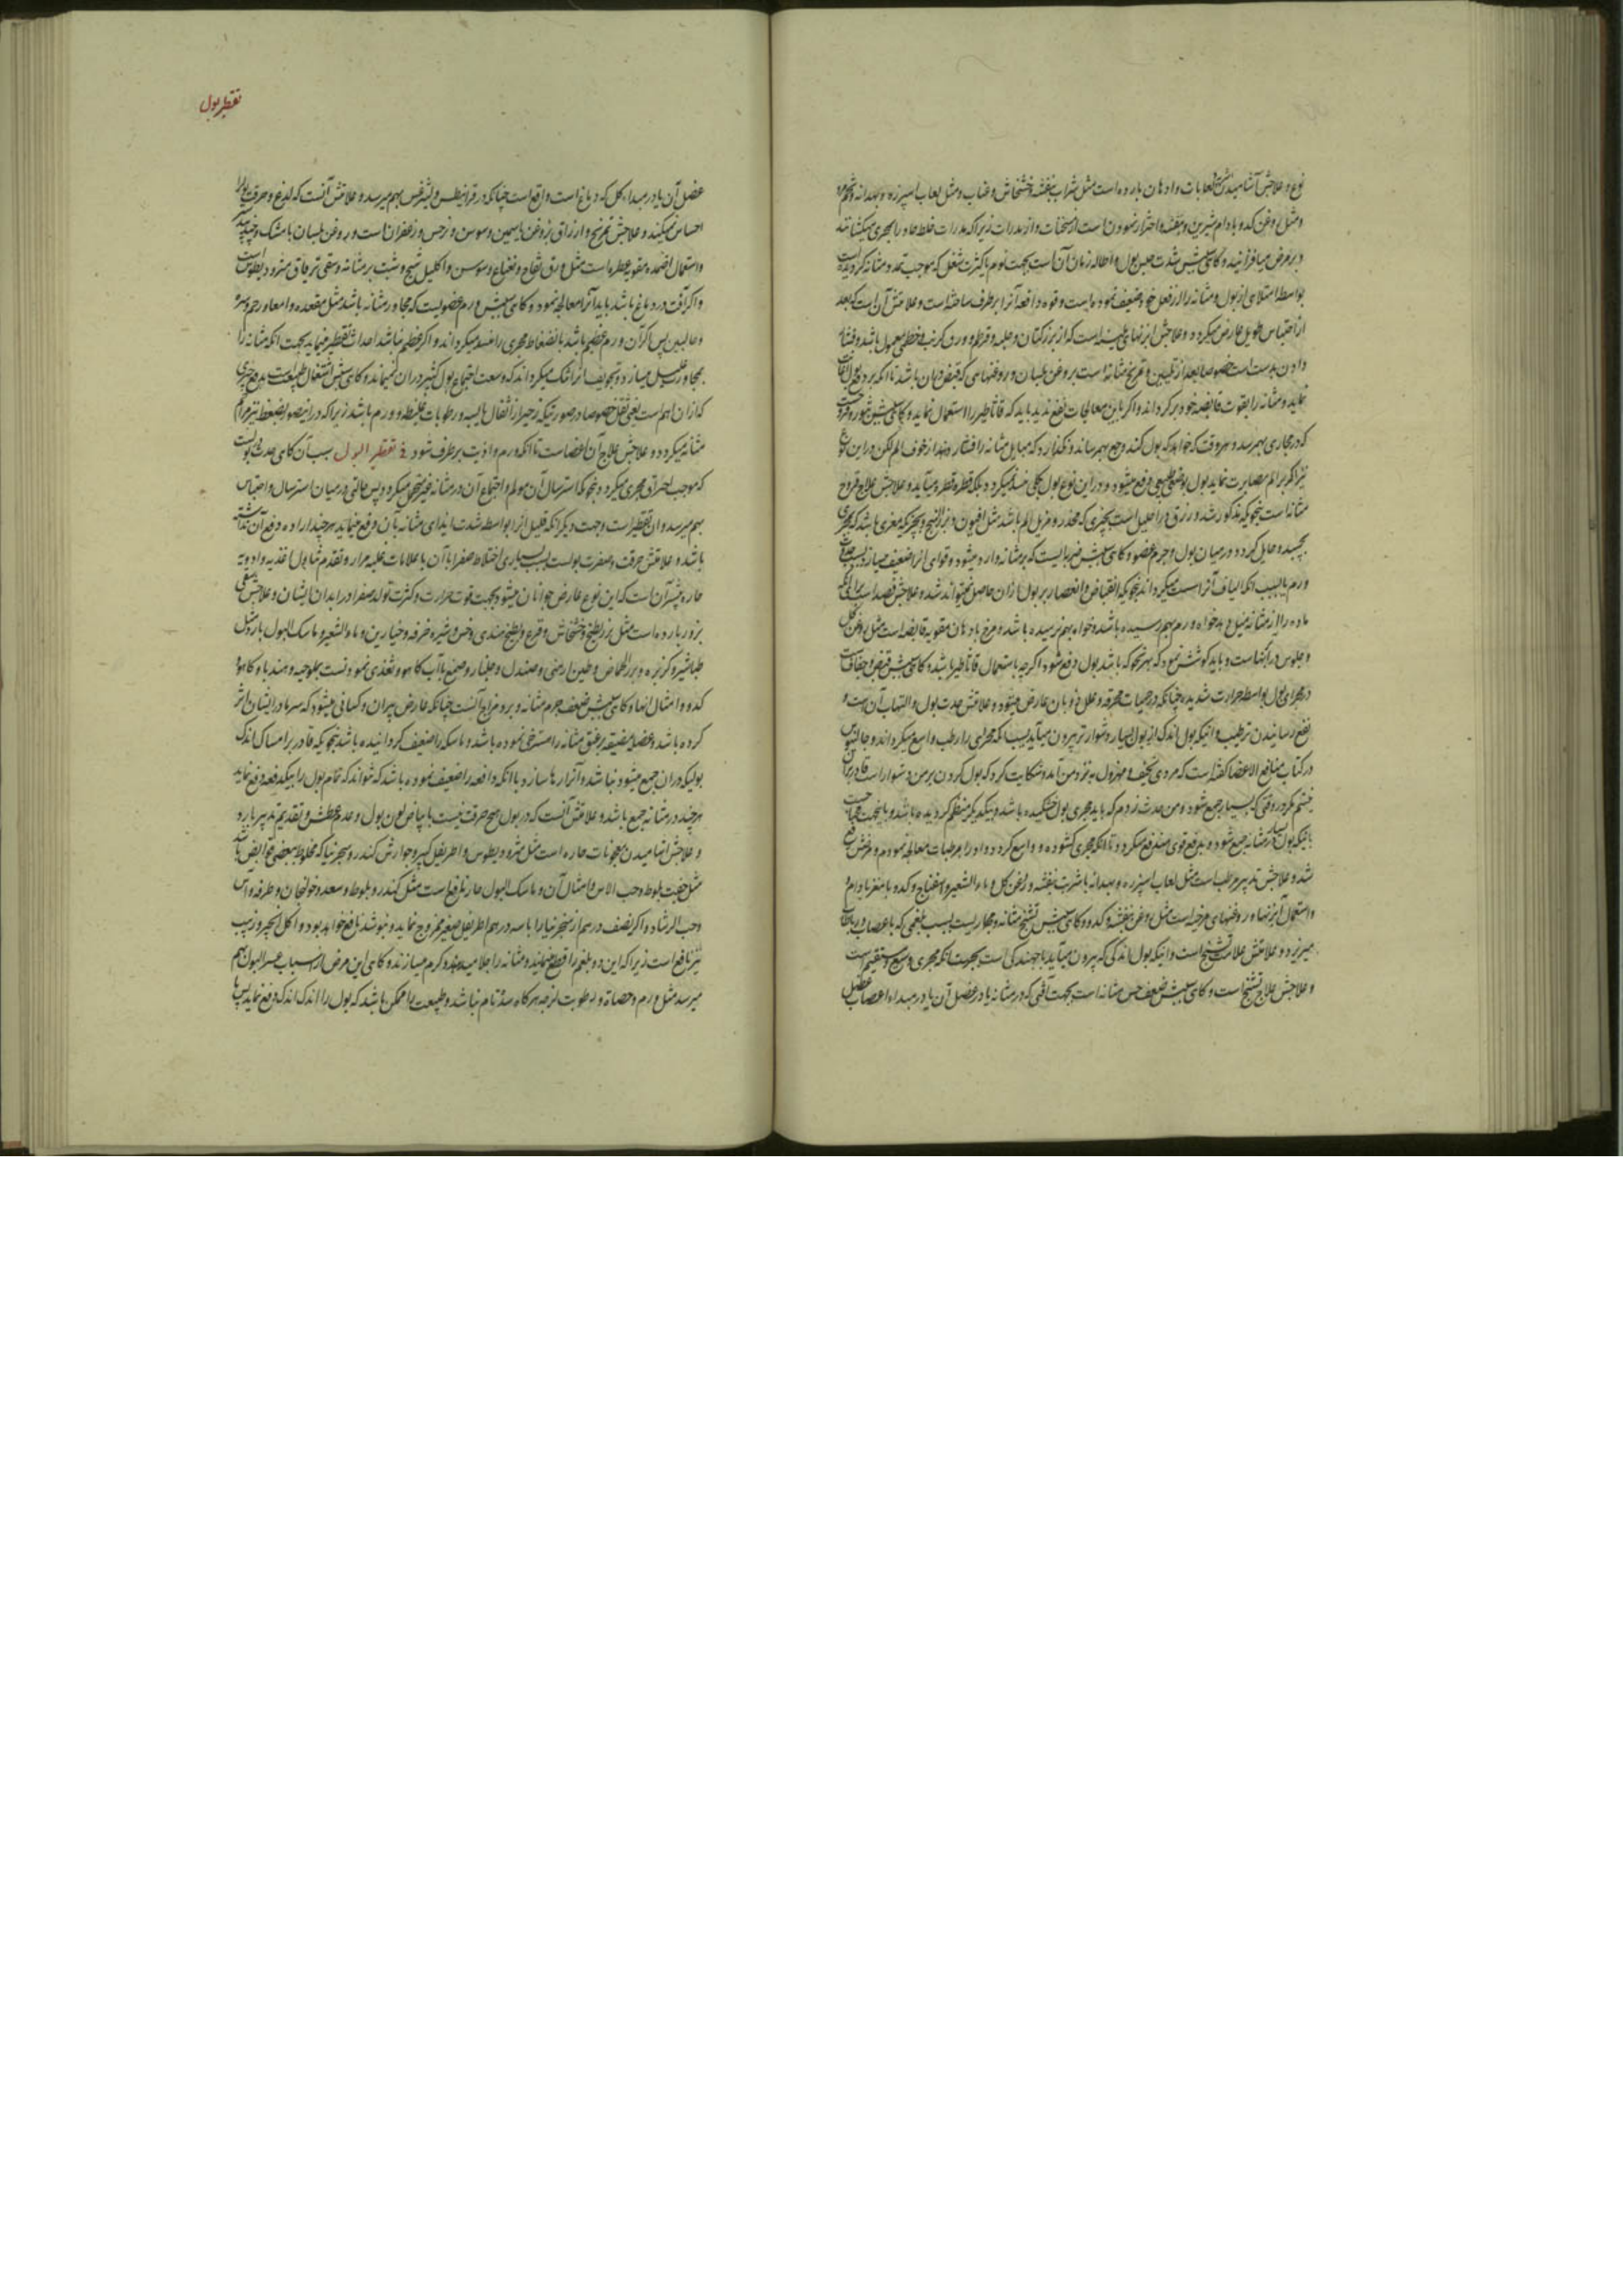 نوع و علاجش آشامیدن لعابات و ادهان بارده است مثل شراب بنفشه و خشخاش و عناب و مثل لعاب اسپرزه و بهدانه
و مثل روغن کدو و بادام شیرین و بنفشه و احتراز نمودن است از مسخنات و از مدرات زیرا که مدرات خلط حاد را بمجری میکشانند
و در مرض میافزایند و کاهی سببش شدت حبس بول و اطاله زمان آن است بجهت نوم یا کثرت شغل که موجب تمدد مثانه کردیده
بواسطه امتلای از بول و مثانه را از فعل خود ضعیف نموده است و قوه دافعه آنرا برطرف ساخته است و علامتش آن است که بعد
از احتباس طویل عارض میکردد و علاجش ابزنهای ملینه است که از بزر کتان و حلبه و قرطم و ورق کرنب و خطمی معمول باشد و فشار
دادن بدست است خصوصا بعد از تلیین و تمریخ مثانه است بروغن بلسان و روغنهایی که قبض در آن باشد تا انکه بر دفع بول
نماید و مثانه را بقوت قابضه خود برکرداند و اکر باین معالجات نفع ندید باید که قاثاطیر را استعمال نماید و کاهی سببش بثور و قروحیست
که در مجاری بهم رسد و هر وقت که خواهد که بول کند وجع بهم رساند و نکذارد که عضل مثانه را فشار دهد از خوف الم لکن در این نوع
نیز اکر بر الم مصابرت نماید بول بوضع طبیعی دفع میشود و در این نوع بول بکلی بند نمیکردد بلکه قطره قطره میآید و علاجش علاج قروح
مثانه است بنحویکه مذکور شد و زرق در احلیل است بچیزی که مخدر و مزیل الم باشد مثل افیون و بزر البنج و بچیزیکه مغری باشد که بمجری
بچسبد و حایل کردد در میان بول و جرم عضو و کاهی سببش ضربه ایست که بر مثانه وارد میشود و قوای آنرا ضعیف میسازد بسبب
ورم یا بسبب انکه الیاف آنرا سست میکرداند بنحویکه انقباض و انعصار بر بول از آن حاصل نمیتواند شد و علاجش فصد است برای انکه
ماده را از مثانه میل دهد خواه ورم بهم رسیده باشد و خواه بهم نرسیده باشد و مرخ بادهان مقویه قابضه است مثل روغن کل
و جلوس در آبها است و باید کوشش نمود که بهر نحو که باشد بول دفع شود اکر چه باستعمال قاثاطیر باشد و کاهی سببش قبض و جفافیست
در مجرای بول بواسطه حرارت شدیده چنانکه در حمیات محرقه و علل ذوبان عارض میشود و علامتش حدت بول و التهاب آن است و
نفع رسانیدن ترطیب و انیکه بول اندک از بول بسیار دشوارتر بیرون میآید بسبب انکه مجرای را رطب و واسع میکرداند و جالینوس
در کتاب منافع الاعضا کفته است که مردی نحیف و مهزول به نزد من آمد و شکایت کرد که بول کردن بر من دشوار است قادر بر آن
نیستم مکر در وقتی که بسیار جمع شود و من حدث زدم که باید مجری بول خشکیده باشد و بیکدیکر منظم کردیده باشد و باینجهت
تا انیکه بول بسیار در مثانه جمع شود و بدفع قوی مندفع میکردد تا انکه مجری کشوده و واسع کردد و او را بمرطبات معالجه نمودم و مرضش رفع
شد و علاجش تدبیر مرطب است مثل لعاب اسپرزه و بهدانه با شربت بنفشه و روغن کل و ماء الشعیر و اسفناج و کدو با مغز بادام و
و استعمال آبزنها و روغنهای مرخیه است مثل روغن بنفشه و کدو و کاهی سببش تشنج مثانه و مجاریست بسبب بلغمی که باعصاب و رباطات
میریزد و علامتش علامت تشنج است و انیکه بول اندکی که بیرون میآید با جهندکی است بجهت انکه مجری وسیع و مستقیم است
و علاجش علاج تشنج است و کاهی سببش ضعف حس مثانه است بجهت آفتی که در مثانه یا در عضل آن یا در مبداء اعصاب
تقطیر بول
عضل آن یا در مبداء کل که دماغ است واقع است چنانکه در قرانیطس و لیثرغس بهم میرسد و علامتش آنست که لذع و حرقت بول را
احساس نمیکند و علاجش تمریخ و ازراق بروغن یاسمین و سوسن و نرجس و زعفران است و بروغن بلسان با مشک و جندبیدستر
و استعمال اضمده مقویه عطره است مثل ورق تفاح و نعناع و سوسن و اکلیل و شیح و شبت بر مثانه و سقی تریاق و مثرودیطوس است
و اکر آفت در دماغ باشد باید آنرا معالجه نمود و کاهی سببش ورم عضویست که مجاور مثانه باشد مثل مقعده و امعا و رحم و سره
و حالبین پس اکر آن ورم عظیم باشد بانضغاط مجری را منسد میکرداند و اکر عظیم نباشد احداث تقطیر مینماید بجهت انکه مثانه را
بمجاورت علیل میسازد و تجویف آنرا تنک میکرداند که وسعت اجتماع بول کثیر در آن نمیماند و کاهی سببش اشتغال طبیعت بدفع چیزی
که از آن اهم است یعنی ثقل خصوصا در صورتیکه زحیر از اثفال یابسه و رطوبات غلیظه و ورم باشد زیرا که در اینصورت ضغط نیز مزاحم
مثانه میکردد و علاجش علاج آن اعضاست تا انکه ورم و اذیت برطرف شود فی تقطیر البول سبب آن کاهی حدت بولست
که موجب احتراق مجری میکردد بنحویکه استرسال آن مولم و اجتماع آن در مثانه غیر متحمل میکردد پس حالتی در میان استرسال و احتباس
بهم میرسد و آن تقطیر است و جهت دیکر انکه قلیل آنرا بواسطه شدت ایذای مثانه بآن دفع مینماید هر چند اراده دفع آن نداشته
باشد و علامتش حرقت و صفرت بولست بسبب بسیاری اختلاط صفرا با آن با علامات غلبه مرار و تقدم تناول اغذیه و ادویه
حاره و بیشتر آن است که این نوع عارض جوانان میشود بجهت قوت حرارت و کثرت تولد صفرا در ابدان ایشان و علاجش سقی
بزور بارده است مثل بزر بطیخ و خشخاش و قرع و بطیخ هندی و خس و شیره خرفه و خیارین و ماء الشعیر و ماسک البول بارد مثل
طباشیر و کزبره و بزر الحماض و طین ارمنی و صندل و جلنار و صمغ باآب کاهو و تغذی نمودنست بملوخیه و هندبا و کاهو و
کدو و امثال آنها و کاهی سببش ضعف جرم مثانه و برد مزاج آنست چنانکه عارض پیران و کسانی میشود که سرما در ایشان اثر
کرده باشد و عضله مضیقه بر عنق مثانه را مسترخی نموده باشد و ماسکه را ضعیف کردانیده باشد بنحویکه قادر بر امساک اندک
بولیکه در آن جمع میشود نباشد و آنرا رها سازد یا انکه دافعه را ضعیف نموده باشد که نتواند که تمام بول را بیکدفعه دفع نماید
هر چند در مثانه جمع باشد و علامتش آنست که در بول هیچ حرقت نیست با بیاض لون بول و عدم عطش و تقدیم تدبیر بارد
و علاجش اشامیدن معجونات حاره است مثل مثرودیطوس و اطریفل کبیر و جوارش کندر و سجزنیا که مخلوط ببعضی قوابض باشد
مثل جفت بلوط و حب الاس و امثال آن و ماسک البول حار نافع است مثل کندر و بلوط و سعد و خولنجان و
و حب الرشاد و اکر نصف درهم از سجزنیا را با سه درهم اطریفل صغیر ممزوج نماید و بنوشد نافع خواهد بود و اکل انجیر و زبیب
نیز نافع است زیرا که این دو بلغم را قطع مینمایند و مثانه را جلا میدهند و کرم میسازند و کاهی این مرض از اسباب عسر البول بهم
میرسد مثل ورم و حصاة و رطوبت لزجه هرکاه سده تام نباشد و طبیعت را ممکن باشد که بول را اندک اندک دفع نماید پس